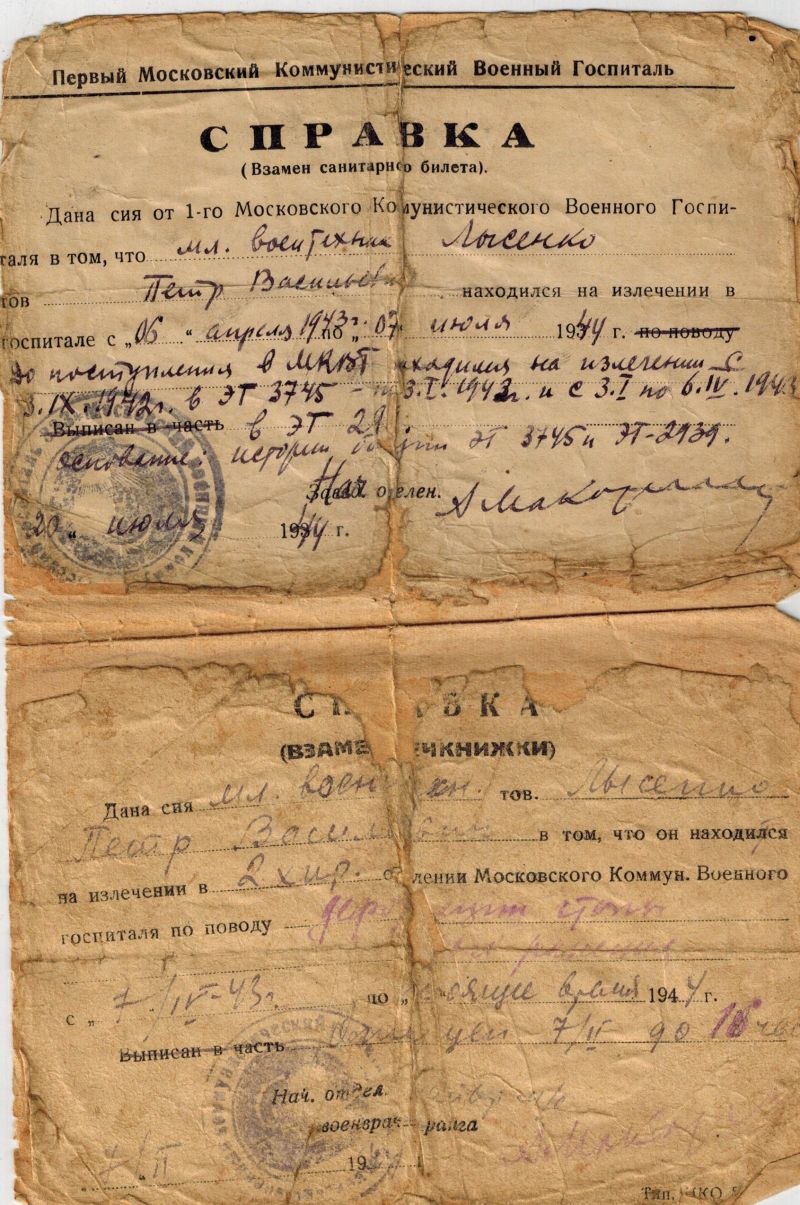 Первый Московский Коммунистический Военный Госпиталь
СПРАВКА
(Взамен санитарно билета).
Дана сия от 1-го Московского Коммунистического Военного Госпи-
таля в том, что мл. воентехник Лысенко
тов Петр Васильевич находился на излечении в
госпитале с „06 “ апреля 1943г. по „07 июля 1944 г. по поводу
До поступления в МКВГ находился на излечении с
3.IX.1942г. в ЭГ 3745 - по 3.I.1943г. и с 3.I по 6.IV.1943
Выписан в часть в ЭГ 29
основание: истории болезни ЭГ 3745 и ЭГ-2939.
Нач отделен.
20 „ июля 1944 г.
СПРАВКА
(ВЗАМЕ ЕЧКНИЖКИ)
Дана сия мл. воен тов. Лысенко
Петр Васильевич в том, что он находился
на излечении в 2 хир. отделении Московского Коммун. Военного
госпиталя по поводу стопы
ранения
с „ 7/IV-43г. по „ время 1944 г.
Выписан в часть 7/II до 16 час
Нач. отдел.
военврач ранга
7/II 1944
Тип. НКО